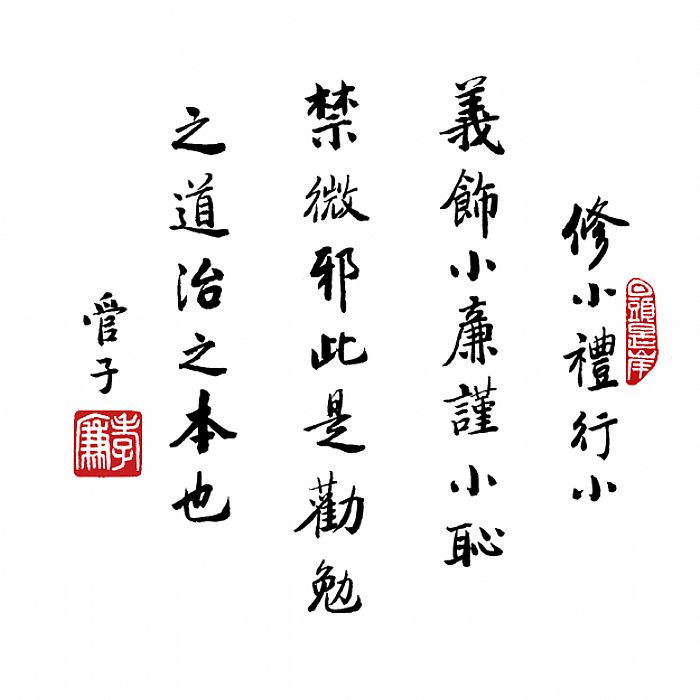 修小禮行小
義飾小廉謹小恥
禁微邪此是勸勉
之道治之本也
管子
回頭是岸
孝廉